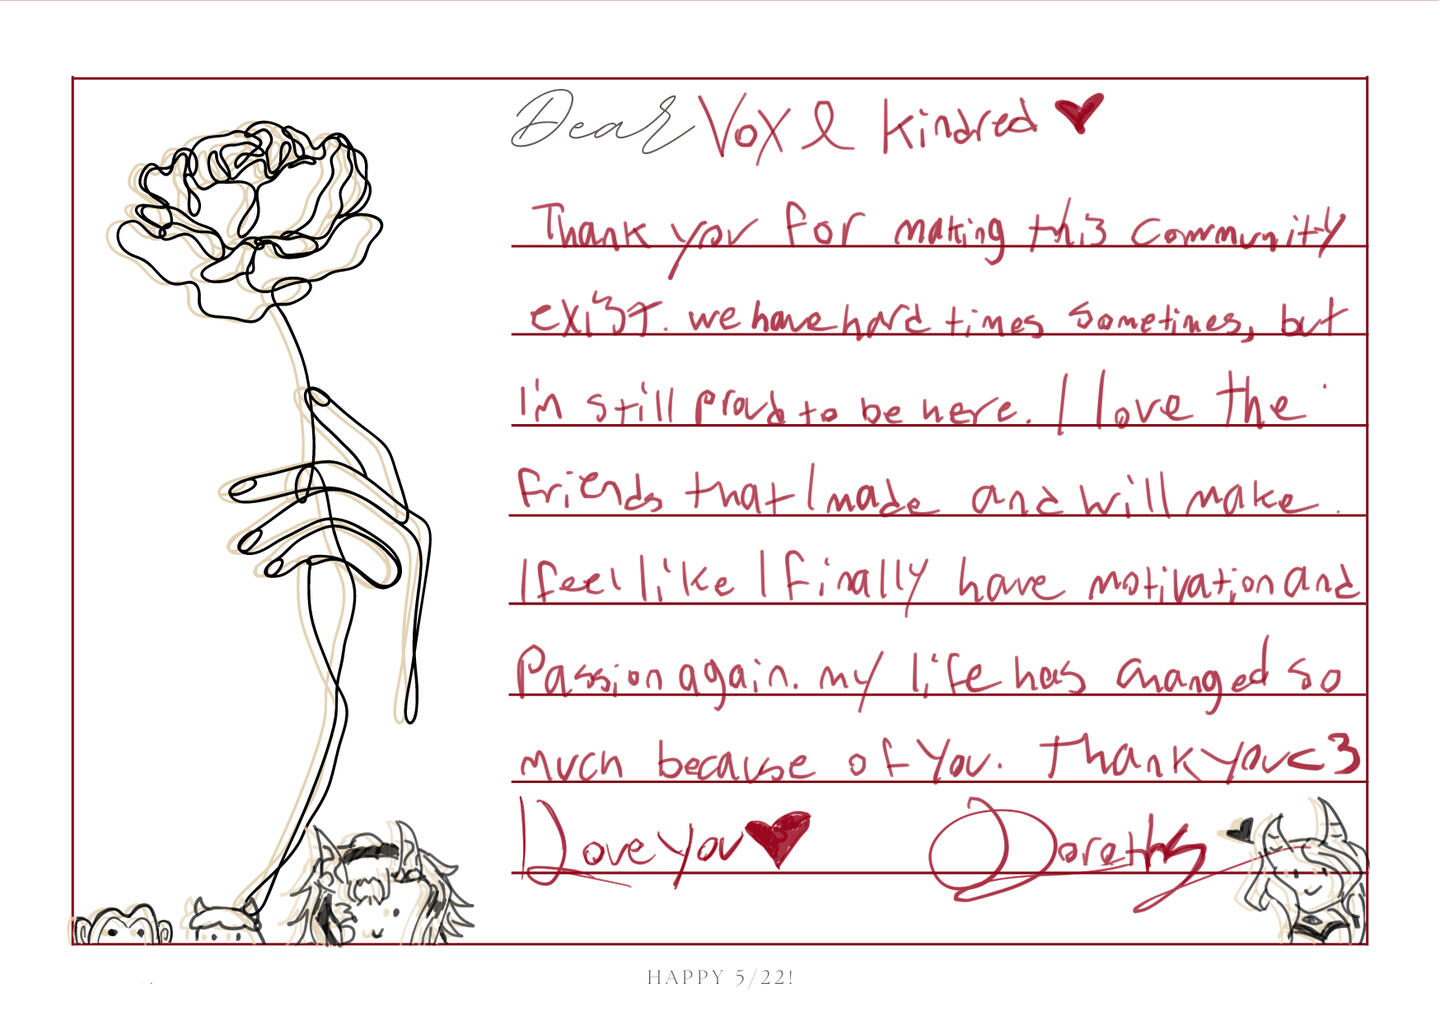 Dear Vox & Kindred ♥
Thank you for making this community
exist. we have hard times sometimes, but
I'm still proud to be here. I love the
friends that I made and will make.
I feel like I finally have motivation and
Passion again. my life has changed so
much because of You. Thank you <3
Love you ♥ Dorothy
HAPPY 5/22!